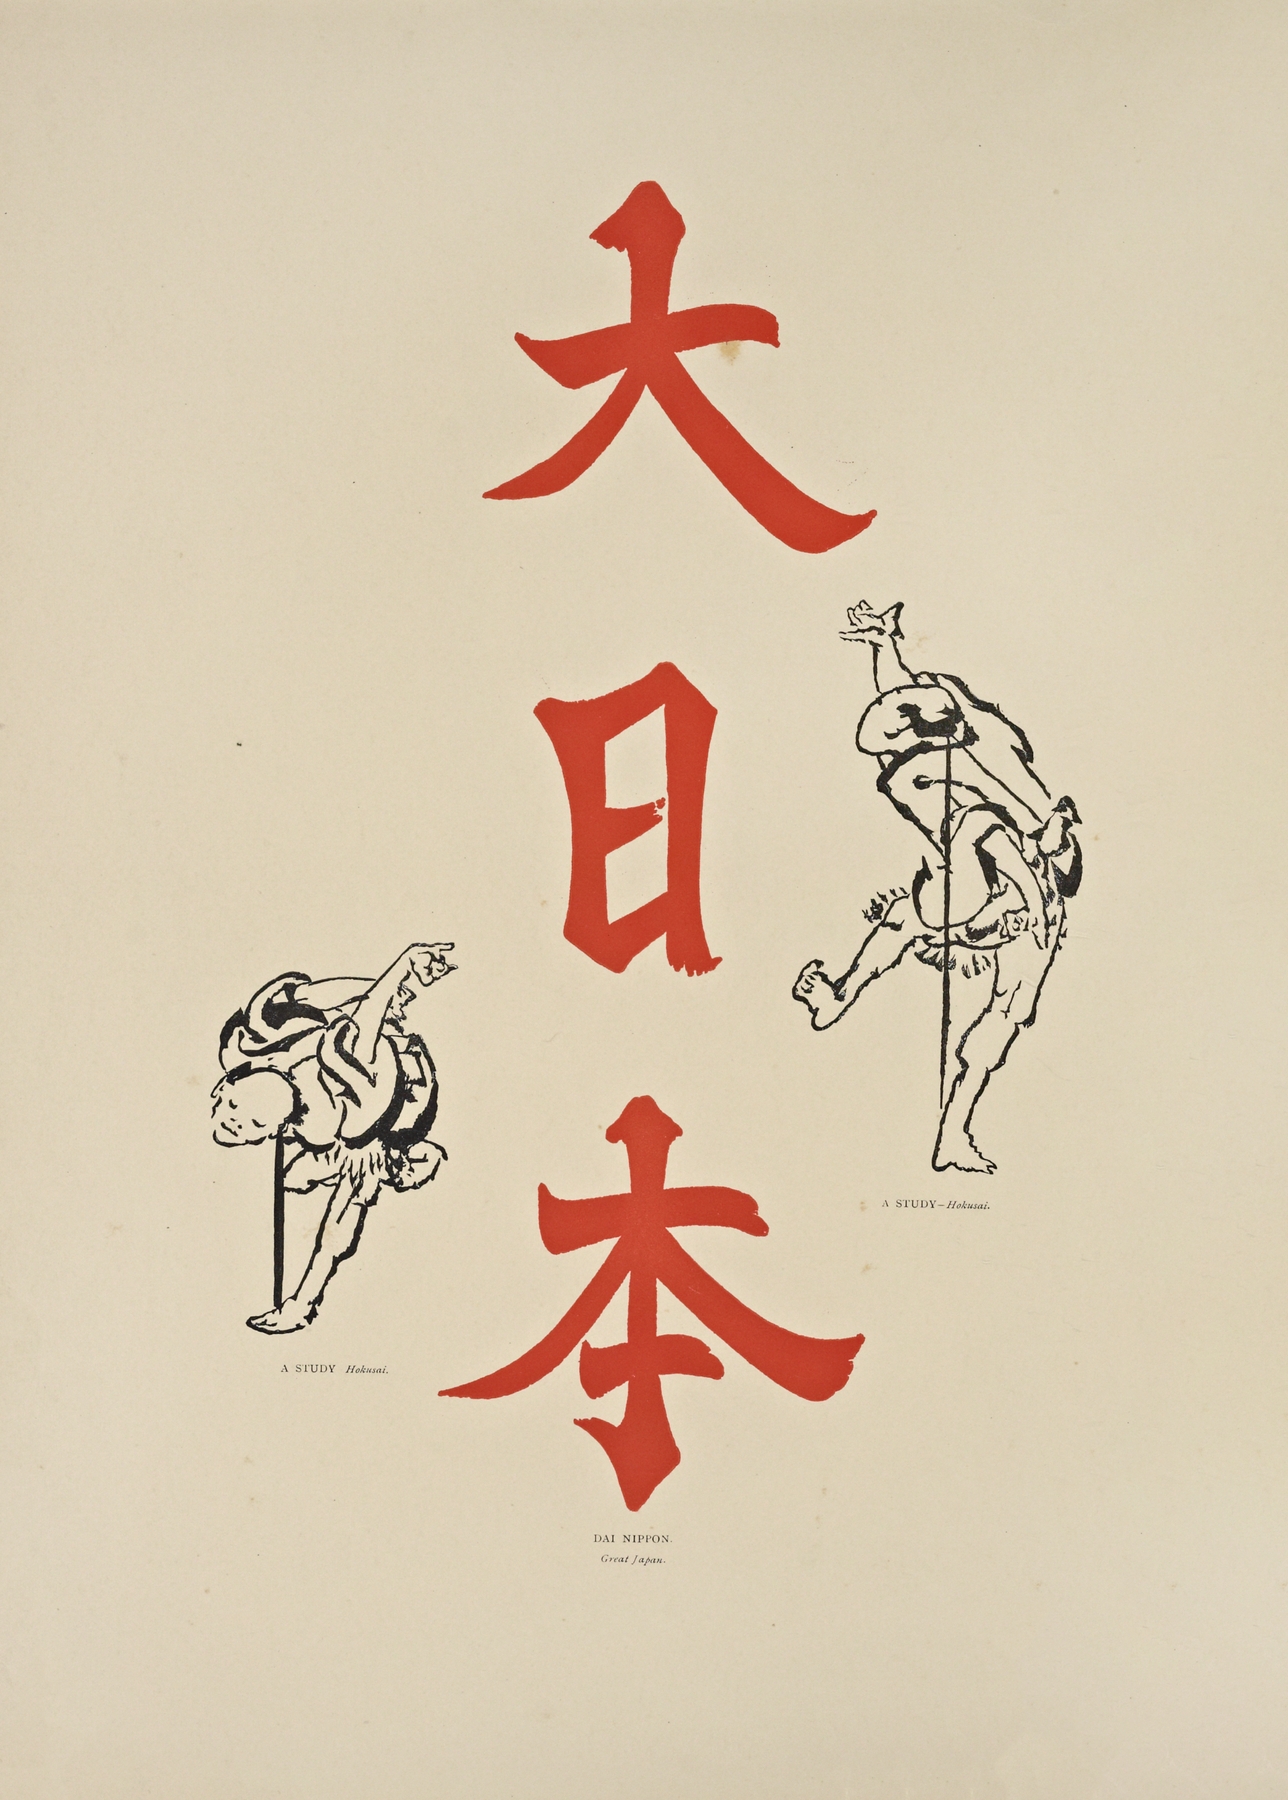 大
日
本
A STUDY–Hokusai.
A STUDY Hokusai.
DAI NIPPON.
Great Japan.